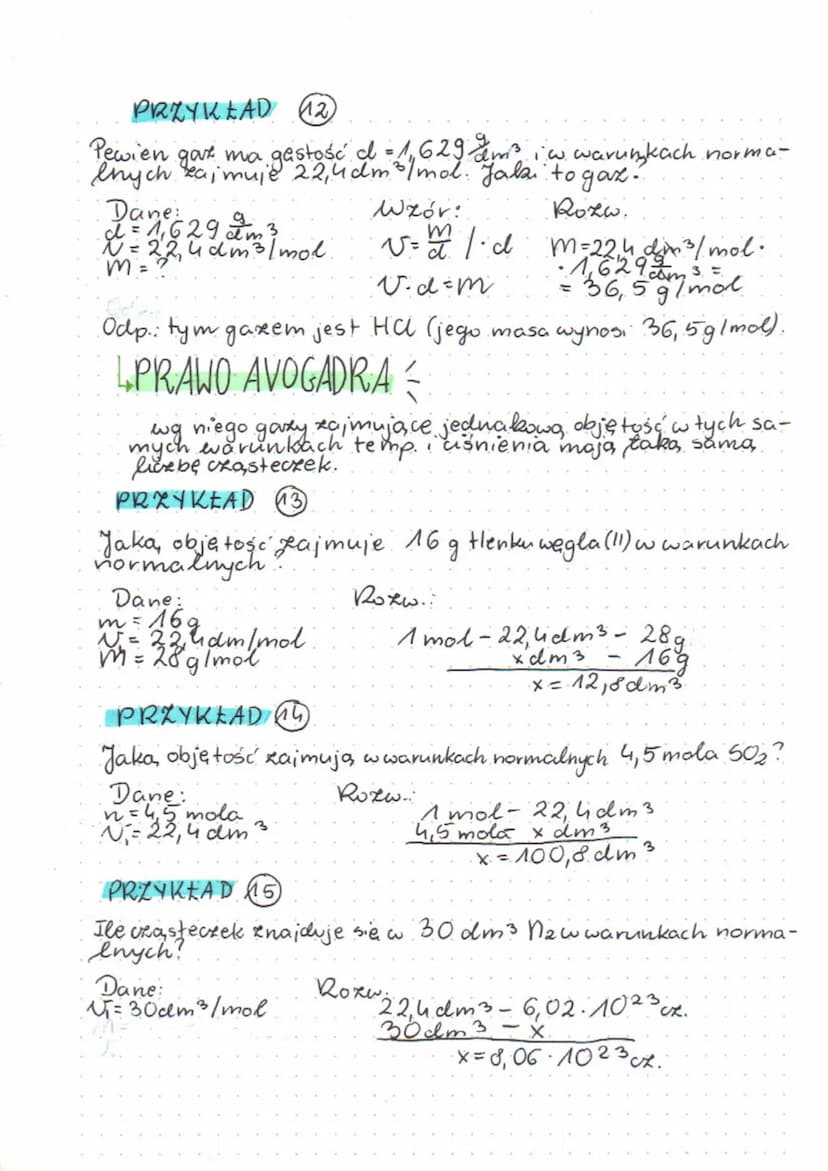 PRZYKŁAD 12
Pewien gaz ma gęstość d = 1,629 g/dm³ i w warunkach norma-
lnych zajmuje 22,4 dm³/mol. Jaki to gaz.
Dane: Wzór: Rozw.
d = 1,629 g/dm³
V = 22,4 dm³/mol V = m/d /·d M = 22,4 dm³/mol ·
M = ? · 1,629 g/dm³ =
V·d = m = 36,5 g/mol
Odp.: tym gazem jest HCl (jego masa wynosi 36,5 g/mol).
↳ PRAWO AVOGADRA
wg niego gazy zajmujące jednakową objętość w tych sa-
mych warunkach temp. i ciśnienia mają taką samą
liczbę cząsteczek.
PRZYKŁAD 13
Jaką objętość zajmuje 16 g tlenku węgla (II) w warunkach
normalnych?
Dane: Rozw.:
m = 16g
V = 22,4 dm/mol 1 mol - 22,4 dm³ - 28g
M = 28 g/mol x dm³ - 16g
x = 12,8 dm³
PRZYKŁAD 14
Jaką objętość zajmują w warunkach normalnych 4,5 mola SO₂?
Dane: Rozw.:
n = 4,5 mola 1 mol - 22,4 dm³
V = 22,4 dm³ 4,5 mola x dm³
x = 100,8 dm³
PRZYKŁAD 15
Ile cząsteczek znajduje się w 30 dm³ N₂ w warunkach norma-
lnych?
Dane: Rozw.
V = 30 dm³/mol 22,4 dm³ - 6,02 · 10²³ cz.
30 dm³ - x
x = 8,06 · 10²³ cz.